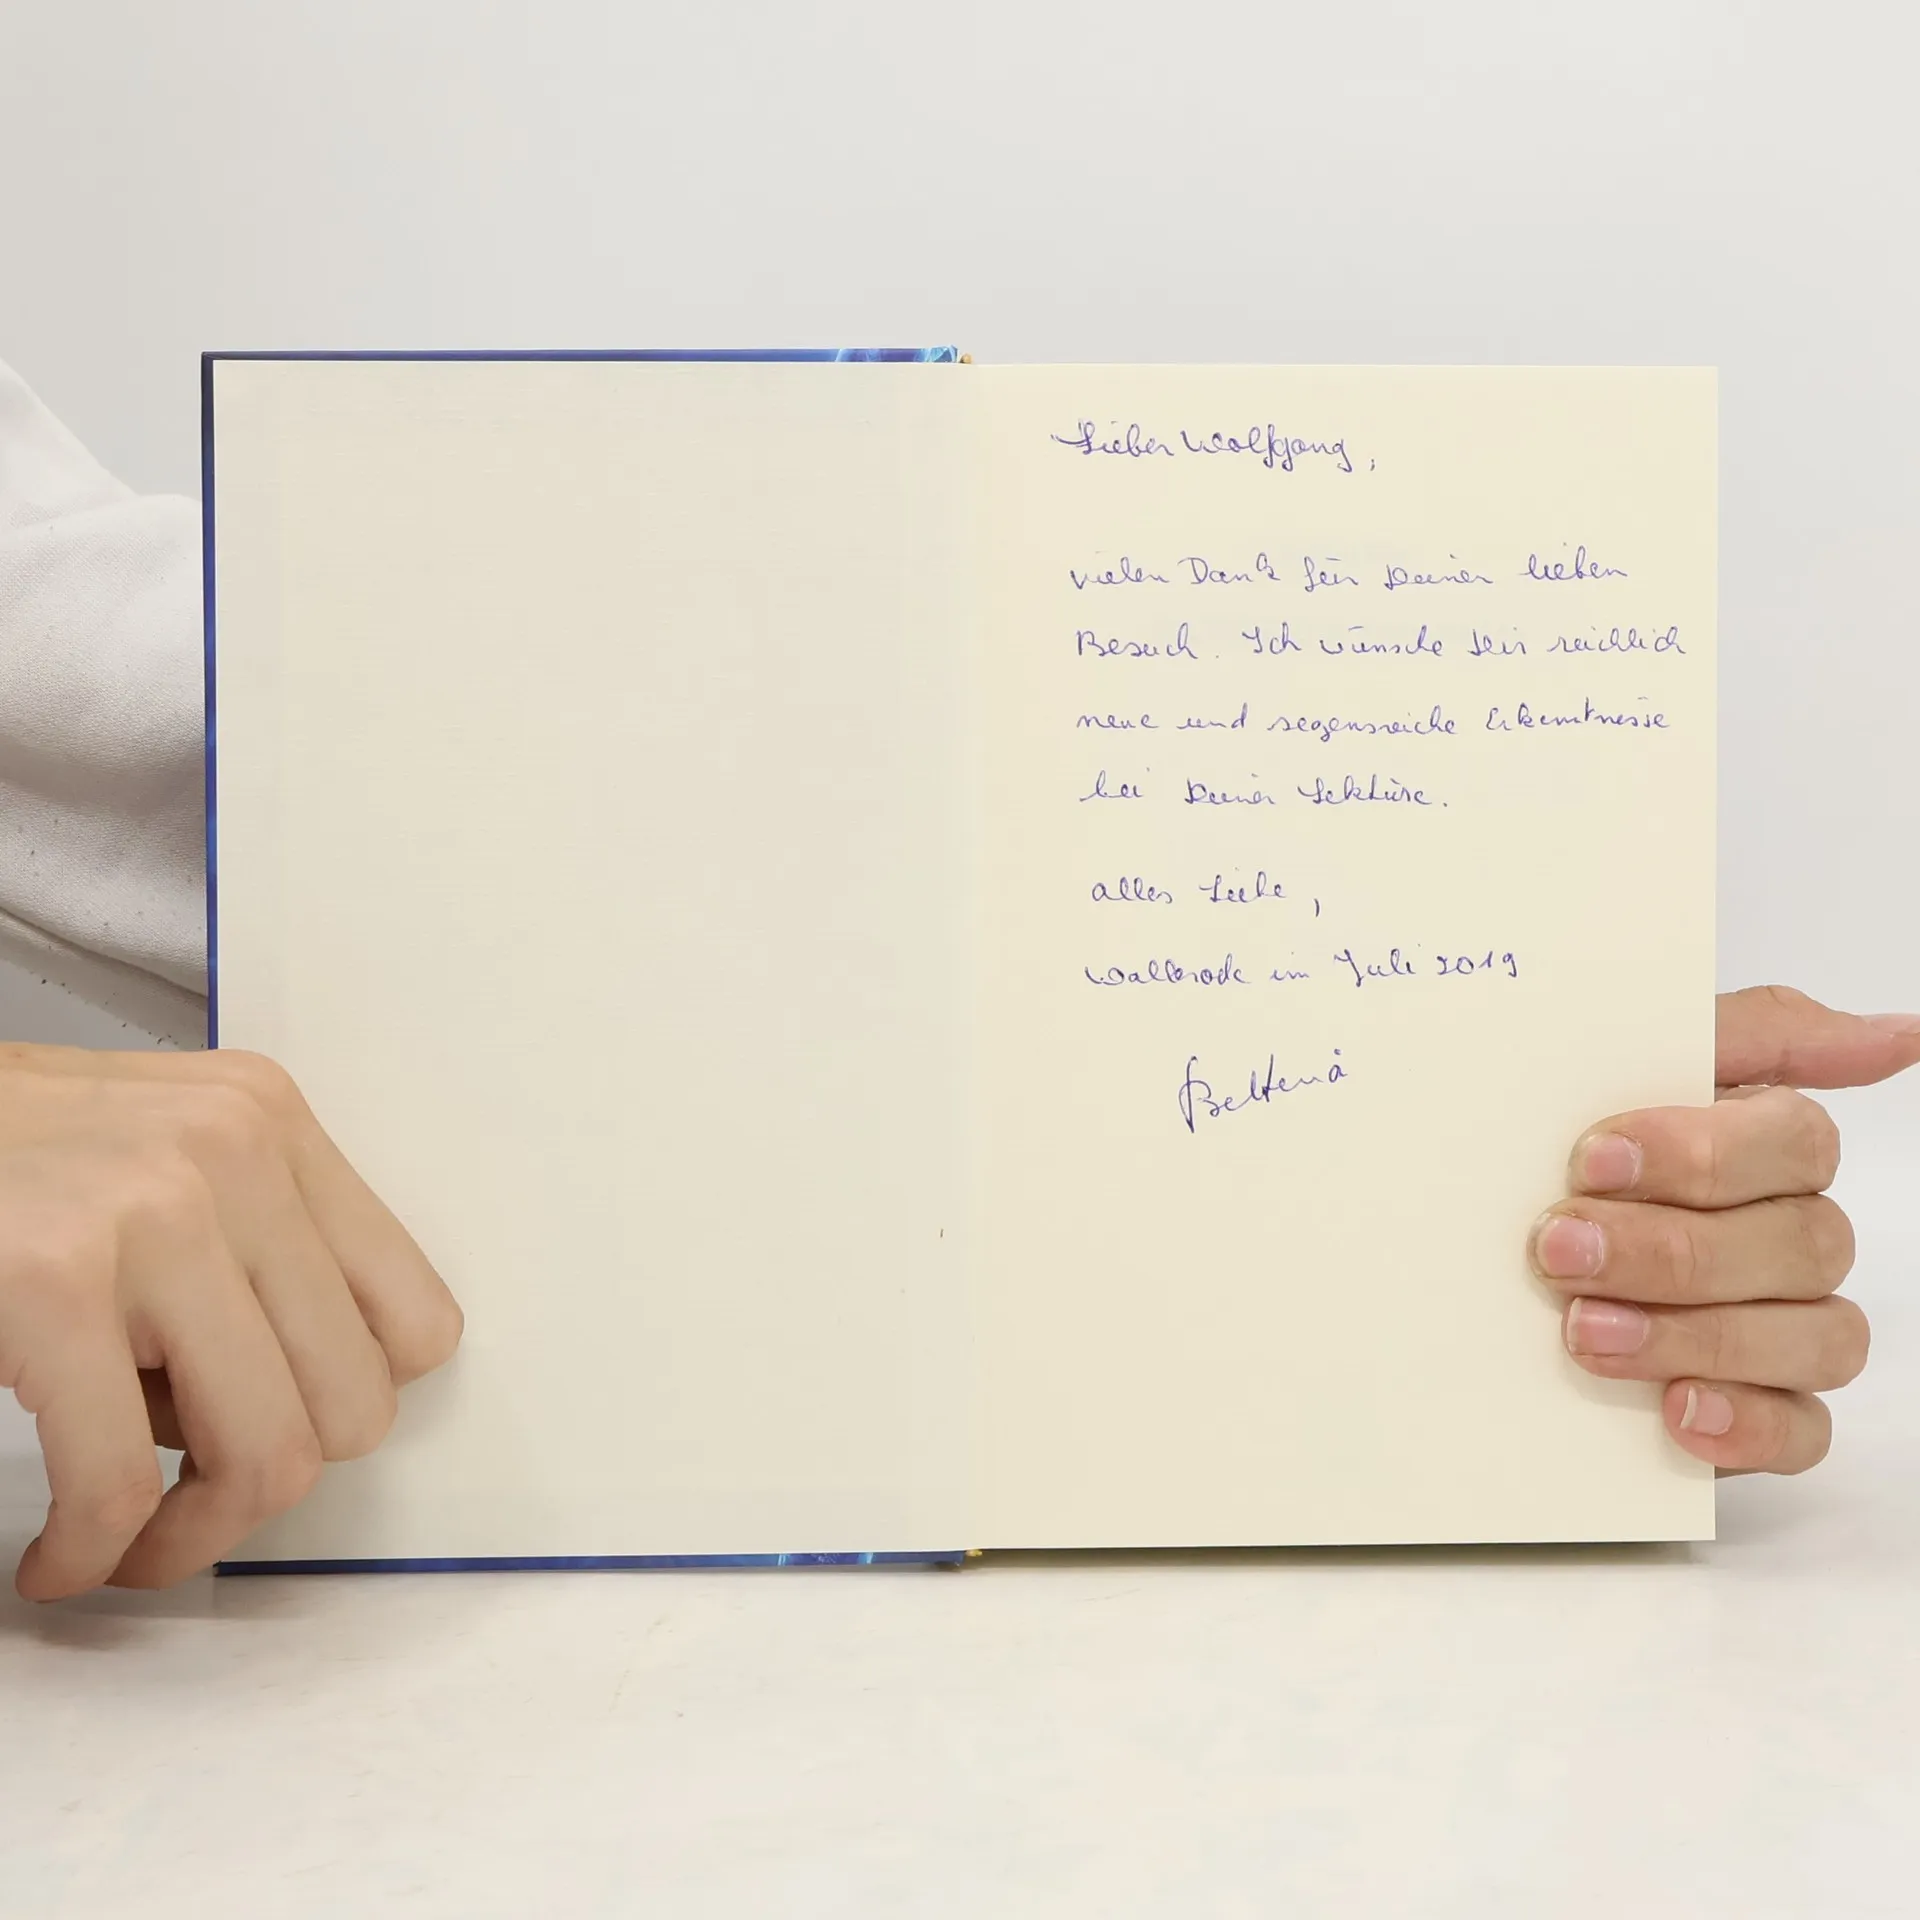 Lieber Wolfgang,
vielen Dank für Deinen lieben
Besuch. Ich wünsche Dir reichlich
neue und segensreiche Erkenntnisse
bei Deiner Lektüre.
alles Liebe,
im Juli 2019